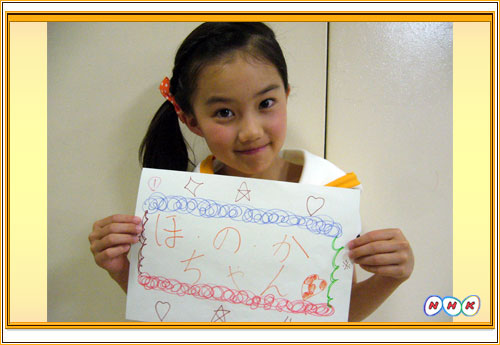 ①
ほ・の・か
ちゃん
NHK